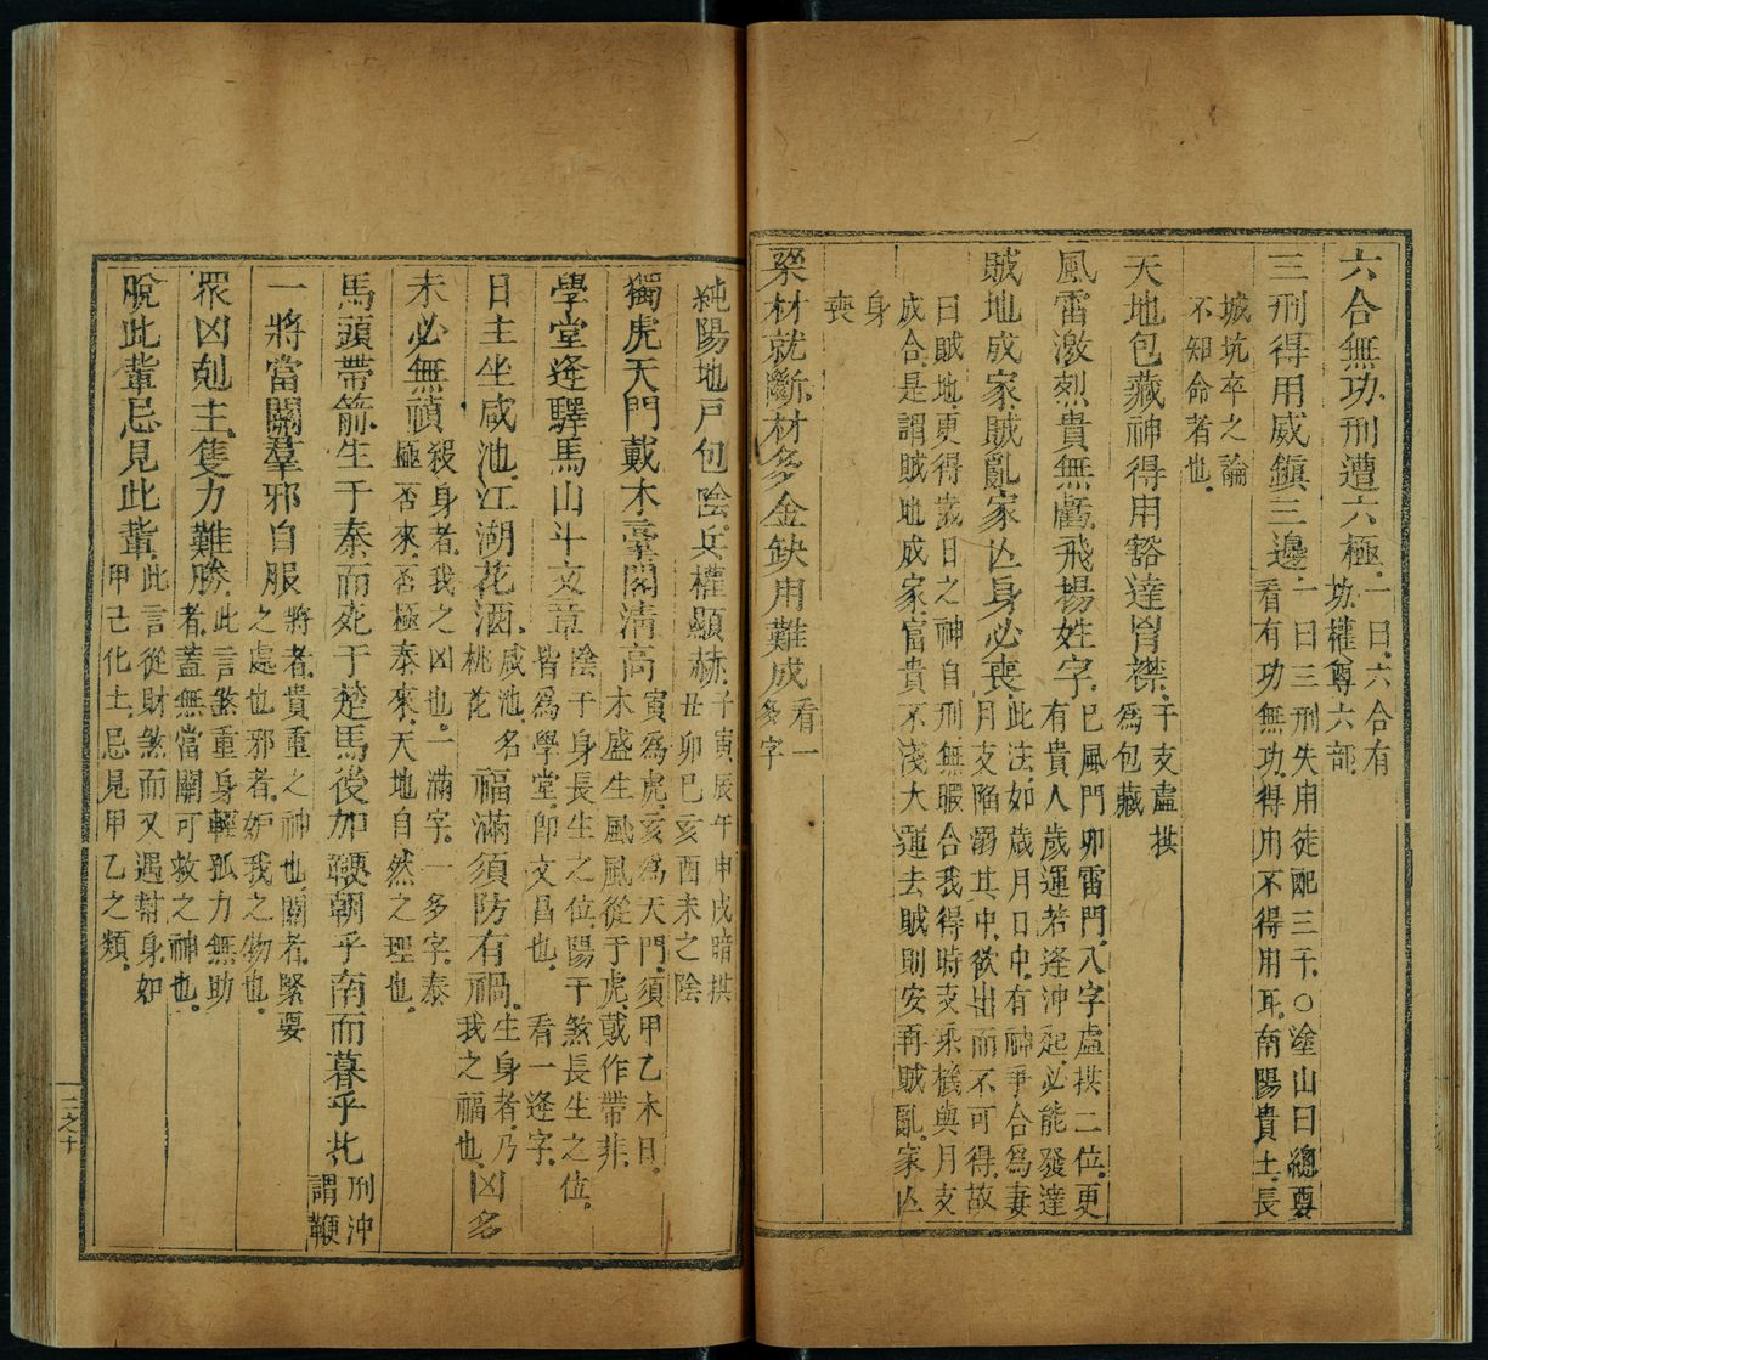 六合無功刑遭六極一曰六合有功權尊六部
三刑得用威鎮三邊一曰三刑失用徒配三千○塗山曰總要看有功無功得用不得用耳南陽貴士長
城坑卒之論不知命者也
天地包藏神得用豁達胷襟干支虛拱為包藏
風雷激烈貴無虧飛揚姓字巳風門卯雷門八字虛拱二位更有貴人歲運若逢沖起必能發達
賊地成家賊亂家亾身必喪此法如歲月日中有神爭合為妻月支陷溺其中欲出而不可得故
曰賊地更得歲日之神自刑無暇合我得時支乘機與月支成合是謂賊地成家富貴不淺大運去賊則安再賊亂家亾
身喪
梁材就斷材多金缺用難成看一多字
純陽地戶包陰兵權顯赫子寅辰午申戌暗拱丑卯巳亥酉未之陰
獨虎天門戴木臺閣清高寅為虎亥為天門須甲乙木日木盛生風風從于虎戴作帶非
學堂逢驛馬山斗文章陰干身長生之位陽干煞長生之位皆為學堂即文昌也看一逢字
日主坐咸池江湖花酒咸池名桃花 福滿須防有禍生身者乃我之福也凶多
未必無禎殺身者我之凶也一滿字一多字泰極否來否極泰來天地自然之理也
馬頭帶箭生于秦而死于楚馬後加鞭朝乎南而暮乎北刑沖謂鞭
一將當關羣邪自服將者貴重之神也關者緊要之處也邪者妒我之物也
眾凶剋主隻力難勝此言煞重身輕孤力無助者蓋無當關可救之神也
脫此輩忌見此輩此言從財煞而又遇幫身如甲己化土忌見甲乙之類
三之十